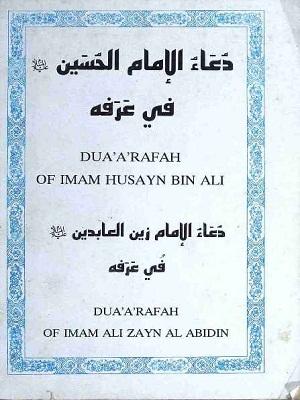 دُعَاءُ الإمام الحُسَين
في عَرَفه
DUA'A'RAFAH
OF IMAM HUSAYN BIN ALI
دُعَاءُ الإمام زين العابدين
في عَرَفه
DUA'A'RAFAH
OF IMAM ALI ZAYN AL ABIDIN